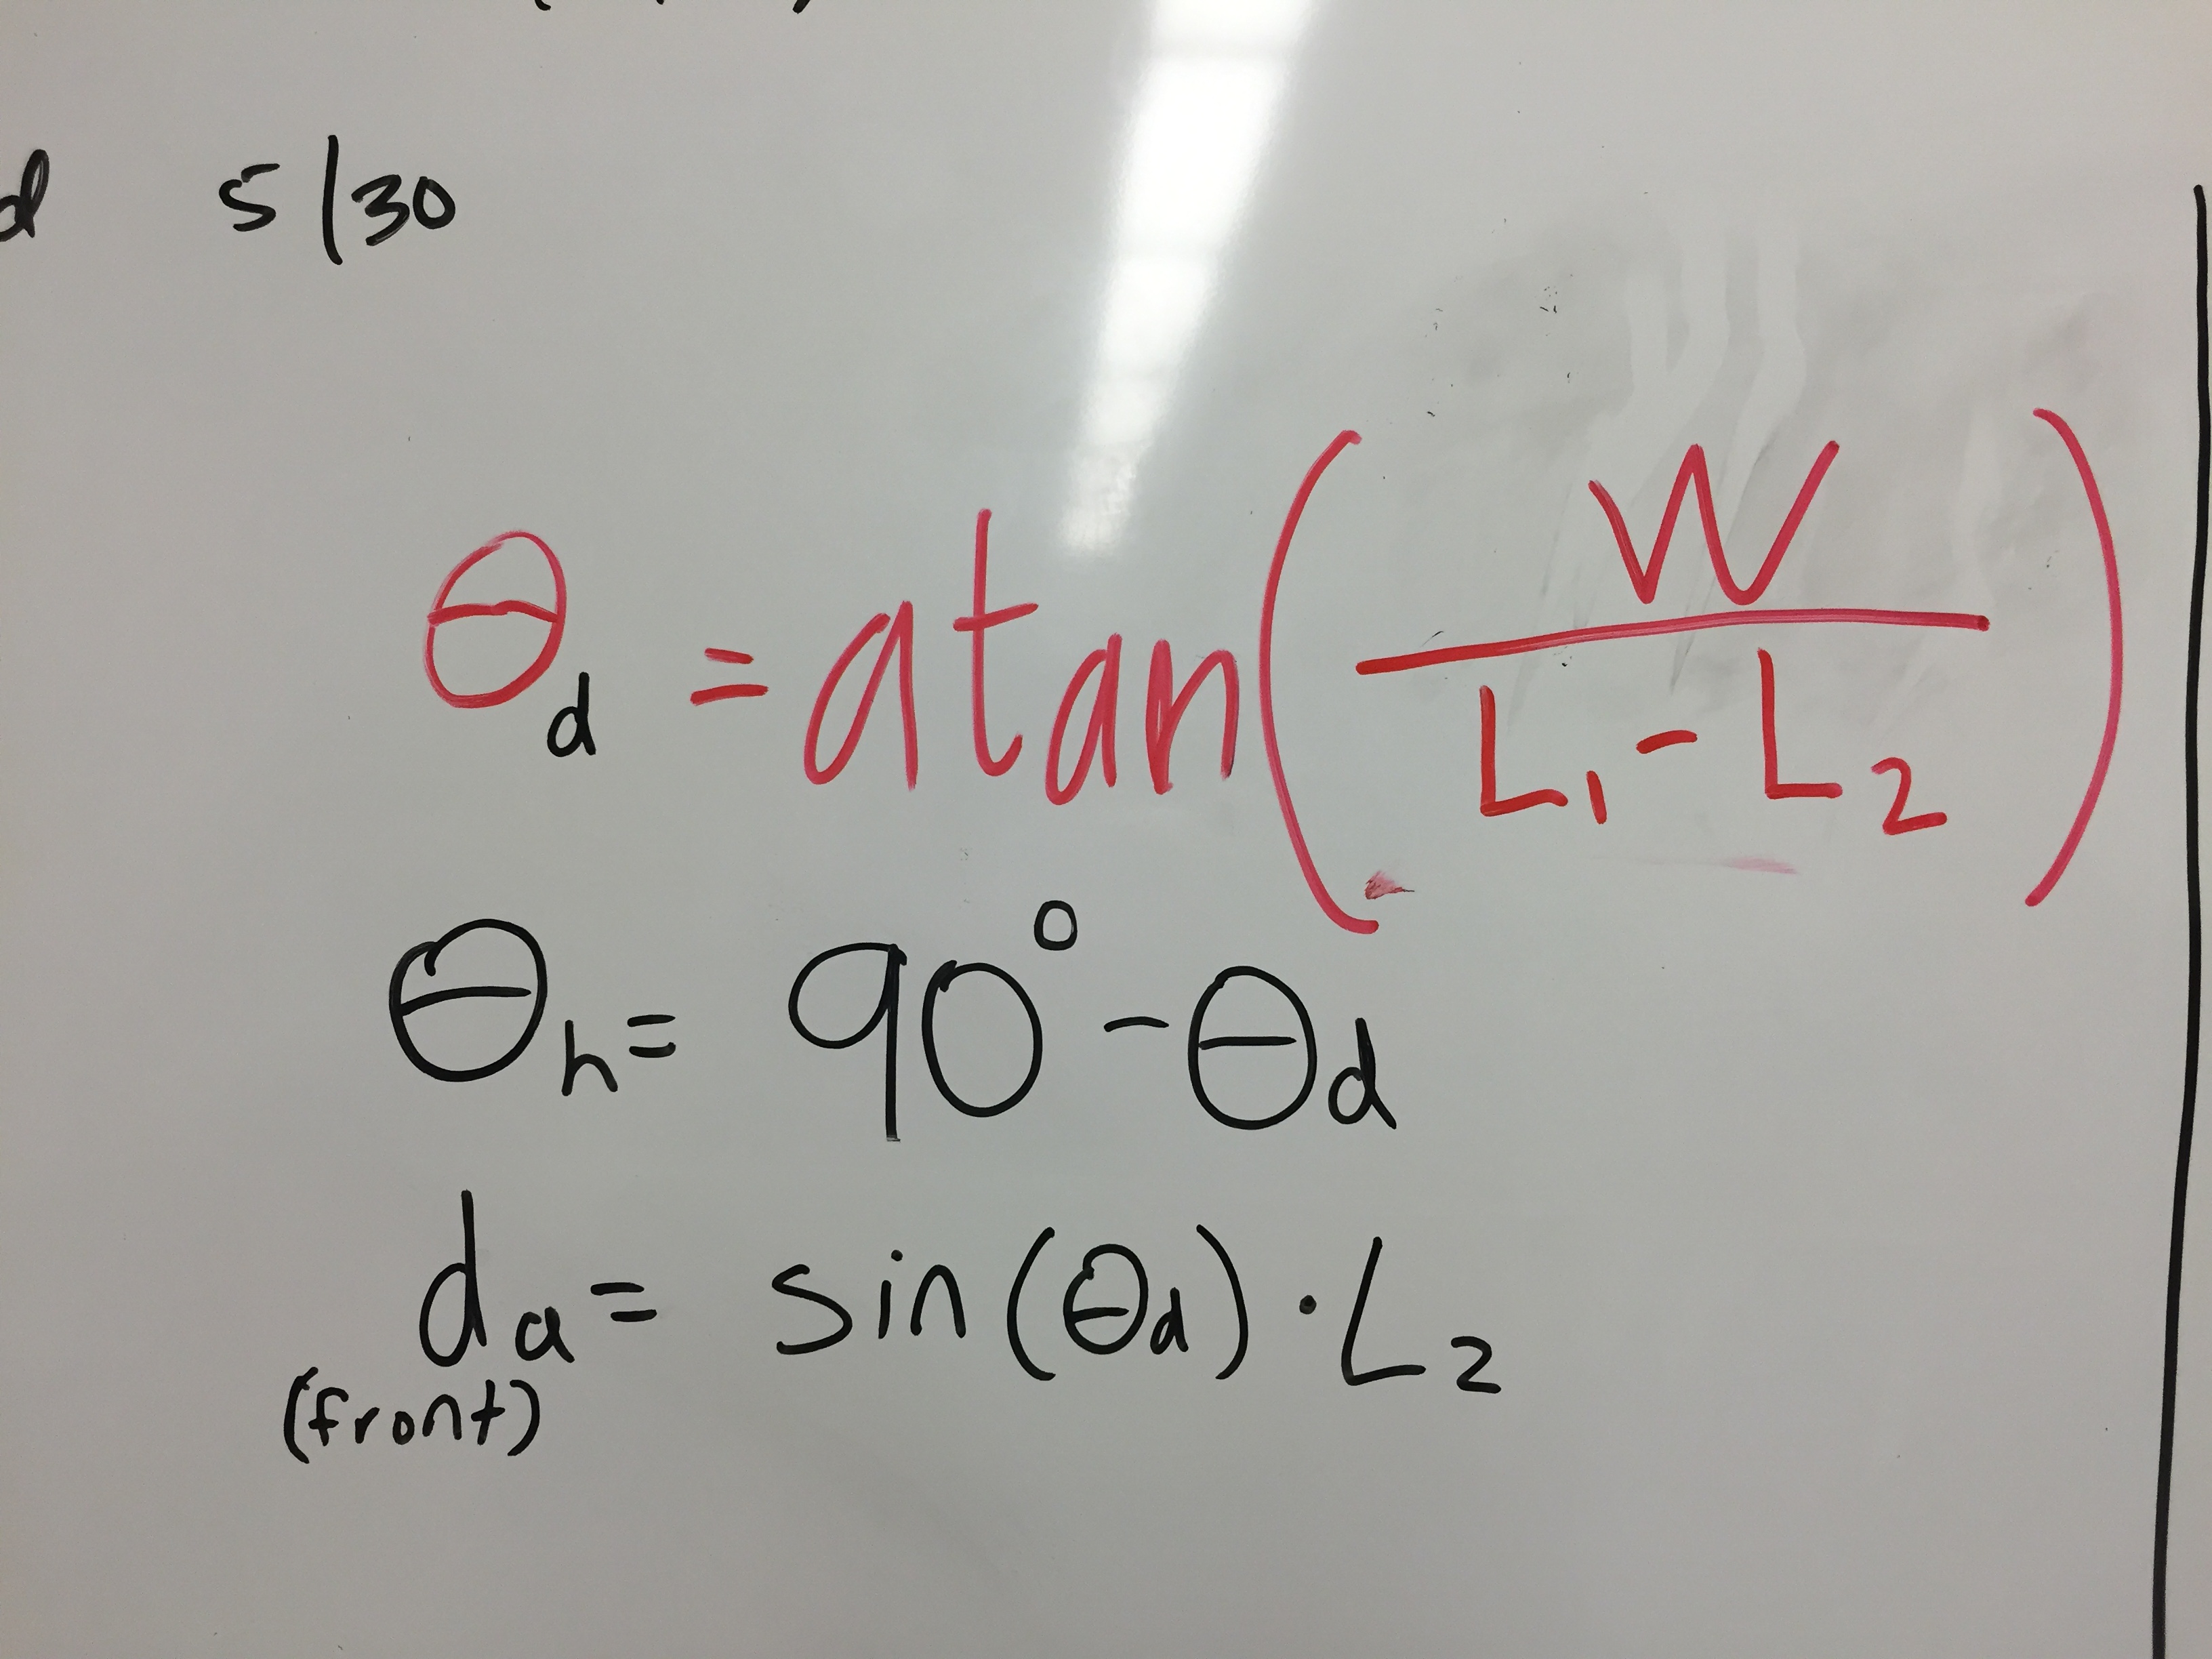 d 5/30
θd = atan(W / (L1 - L2))
θh = 90° - θd
da = sin(θd) · L2
(front)